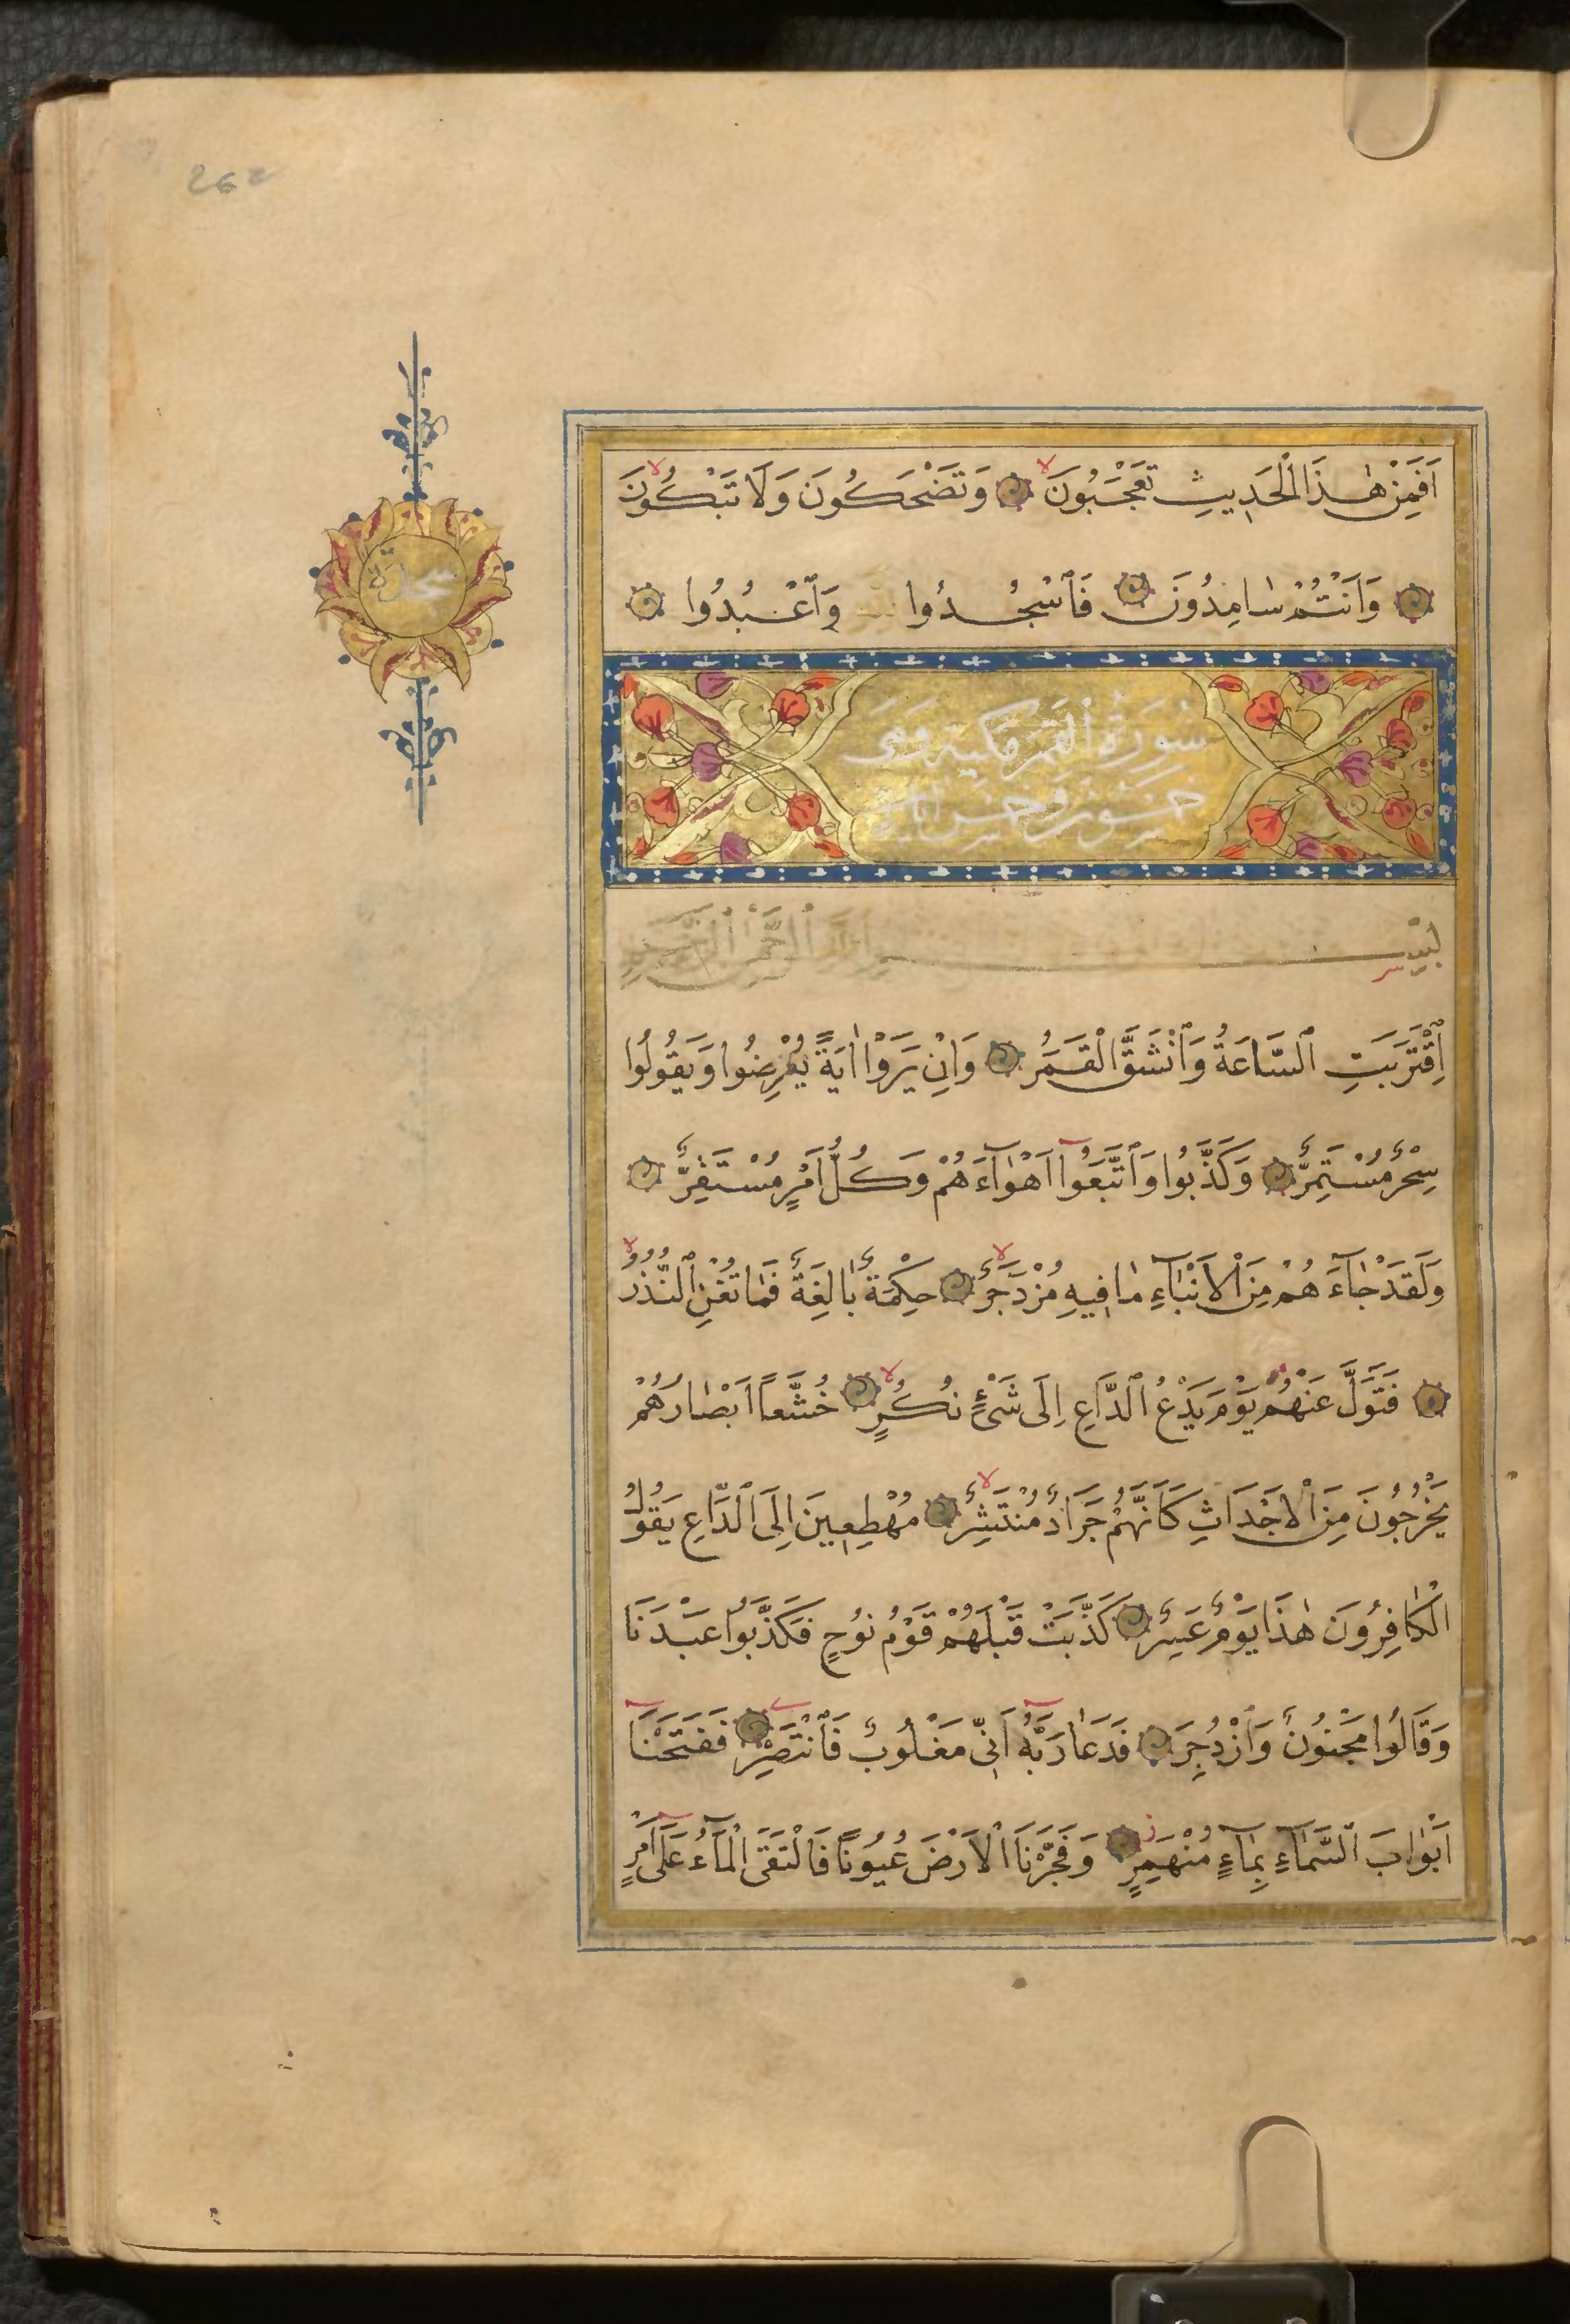 262
اَفَمِنْ هٰذَا الْحَدِيثِ تَعْجَبُونَ ۙ وَتَضْحَكُونَ وَلَا تَبْكُونَ ۙ
وَاَنْتُمْ سٰامِدُونَ فَٱسْجُدُوا وَٱعْبُدُوا
سجدة
سُورَةُ ٱلْقَمَرِ مكية وهى
خمس وخمسون آيات
بِسْمِ ٱللَّهِ ٱلرَّحْمٰنِ ٱلرَّحِيمِ
اِقْتَرَبَتِ ٱلسَّاعَةُ وَٱنْشَقَّ الْقَمَرُ وَاِنْ يَرَوْا اٰيَةً يُعْرِضُوا وَيَقُولُوا
سِحْرٌ مُسْتَمِرٌّ وَكَذَّبُوا وَٱتَّبَعُوٓا اَهْوٰآءَهُمْ وَكُلُّ اَمْرٍ مُسْتَقِرٌّ
وَلَقَدْ جٰآءَهُمْ مِنَ الْاَنْبٰآءِ مٰا فِيهِ مُزْدَجَرٌ ۙ حِكْمَةٌ بٰالِغَةٌ فَمٰا تُغْنِ ٱلنُّذُرُ ۙ
فَتَوَلَّ عَنْهُمْ يَوْمَ يَدْعُ ٱلدَّاعِ اِلَى شَىْءٍ نُكُرٍ ۙ خُشَّعًا اَبْصٰارُهُمْ
يَخْرُجُونَ مِنَ الْاَجْدَاثِ كَاَنَّهُمْ جَرَادٌ مُنْتَشِرٌ ۙ مُهْطِعِينَ اِلَى ٱلدَّاعِ يَقُولُ
الْكٰافِرُونَ هٰذَا يَوْمٌ عَسِرٌ كَذَّبَتْ قَبْلَهُمْ قَوْمُ نُوحٍ فَكَذَّبُوا عَبْدَنَا
وَقَالُوا مَجْنُونٌ وَٱزْدُجِرَ فَدَعَا رَبَّهُٓ اَنِّى مَغْلُوبٌ فَٱنْتَصِرْ فَفَتَحْنَآ
اَبْوٰابَ ٱلسَّمٰآءِ بِمٰآءٍ مُنْهَمِرٍ ز وَفَجَّرْنَا الْاَرْضَ عُيُونًا فَالْتَقَى الْمَآءُ عَلَىٓ اَمْرٍ